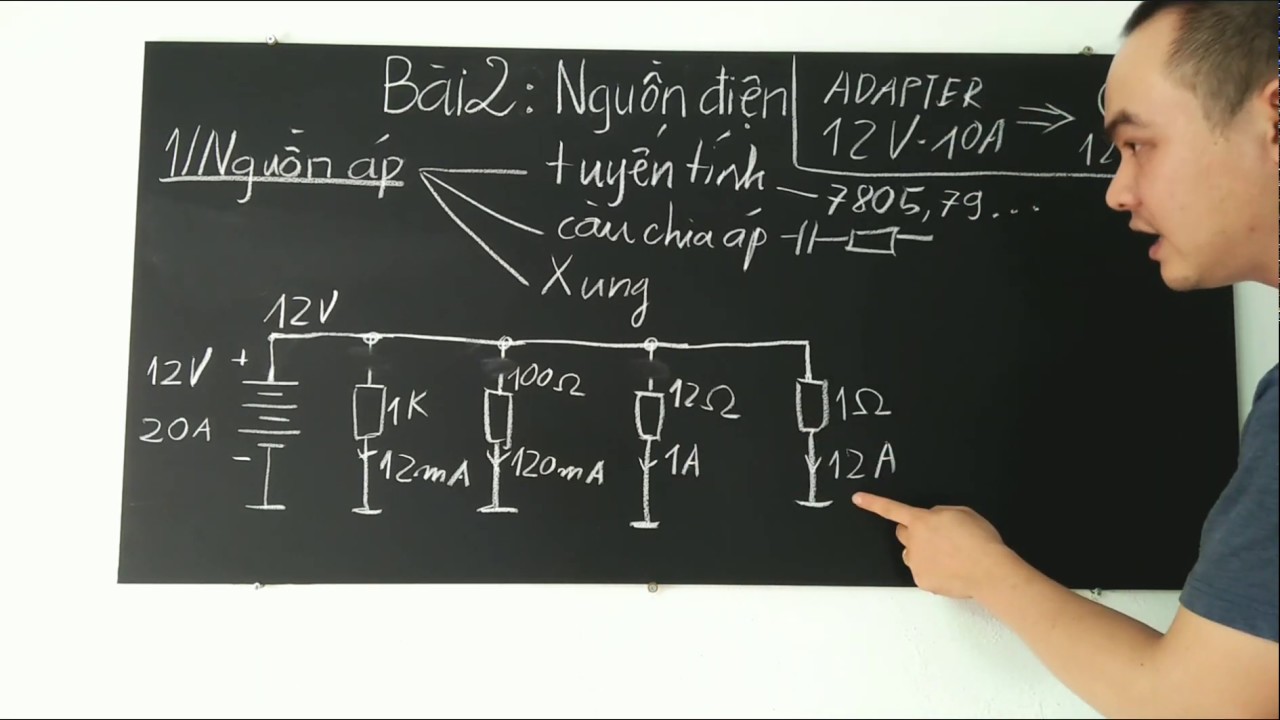 Bài 2: Nguồn điện
ADAPTER
12V-10A ⇒
12
1/Nguồn áp
tuyến tính
7805, 79...
cầu chia áp
Xung
12V
12V +
20A
-
1K
12mA
100Ω
120mA
12Ω
1A
1Ω
12A